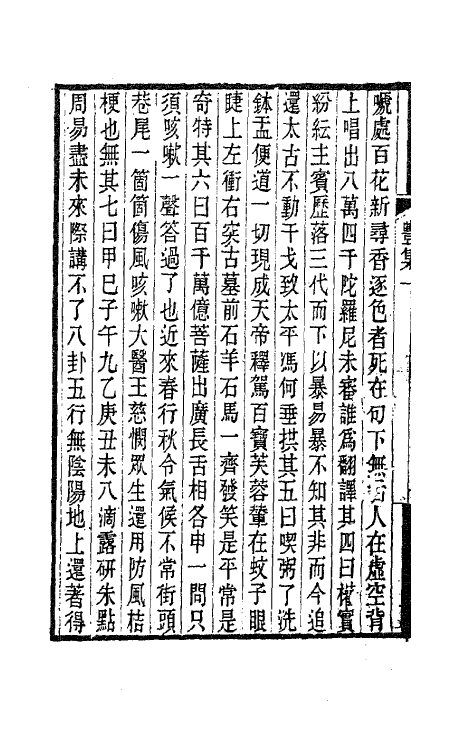 號處百花新尋香逐色者死在句下無舌人在虛空背
上唱出八萬四千陀羅尼未審誰爲翻譯其四曰權實
紛紜主賓歷落三代而下以暴易暴不知其非而今追
還太古不動干戈致太平馮何垂拱其五曰喫粥了洗
鉢盂便道一切現成天帝釋駕百寶芙蓉輦在蚊子眼
睫上左衝右突古墓前石羊石馬一齊發笑是平常是
奇特其六曰百千萬億菩薩出廣長舌相各申一問只
須咳嗽一聲答過了也近來春行秋令氣候不常街頭
巷尾一箇箇傷風咳嗽大醫王慈憫眾生還用防風桔
梗也無其七曰甲巳子午九乙庚丑未八滴露研朱點
周易盡未來際講不了八卦五行無陰陽地上還著得